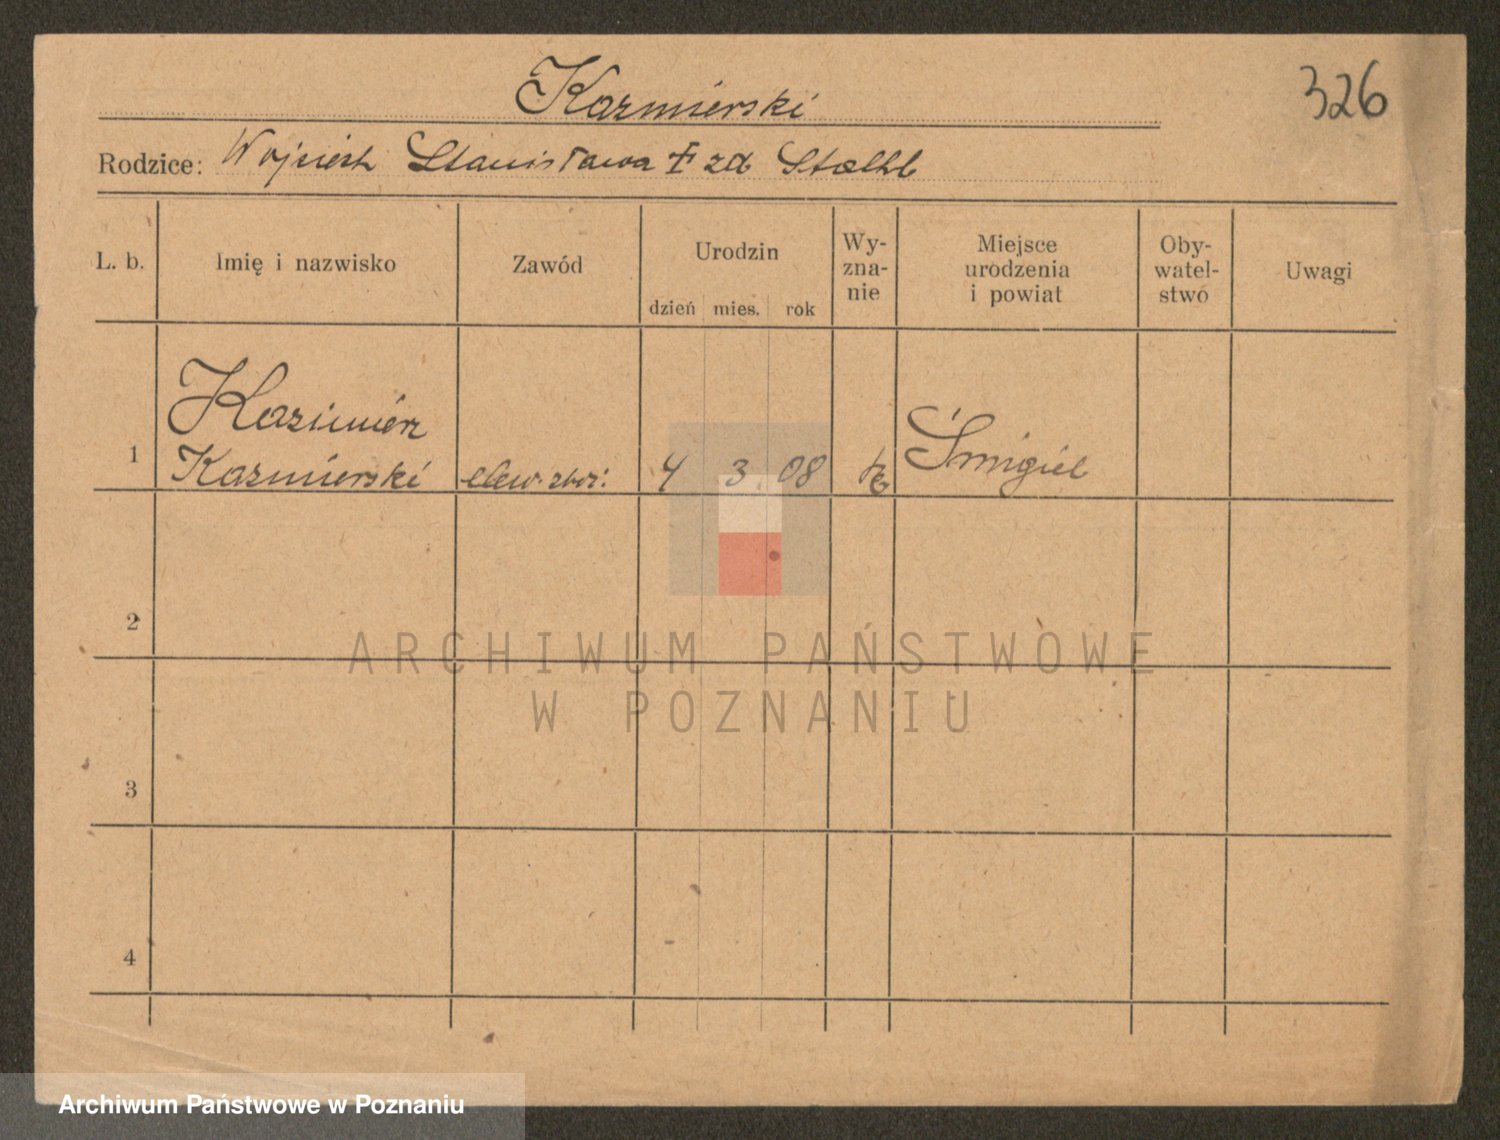 Kazmierski
326
Rodzice: Wojciech Stanisława z d
L. b.
Imię i nazwisko
Zawód
Urodzin
dzień mies. rok
Wy-
zna-
nie
Miejsce
urodzenia
i powiat
Oby-
watel-
stwo
Uwagi
1
Kazimierz
Kazmierski
4 3. 08
Śmigiel
2
3
4
ARCHIWUM PAŃSTWOWE
W POZNANIU
Archiwum Państwowe w Poznaniu